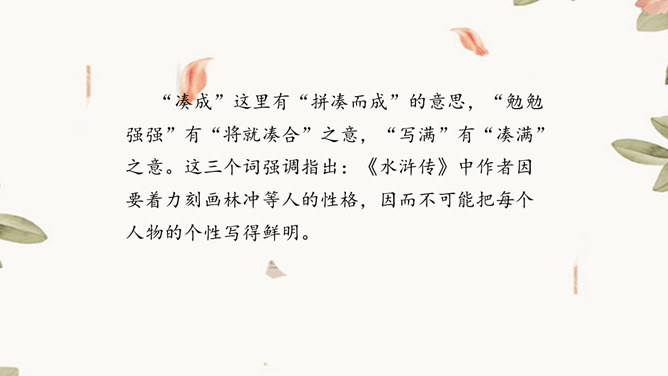 “凑成”这里有“拼凑而成”的意思，“勉勉
强强”有“将就凑合”之意，“写满”有“凑满”
之意。这三个词强调指出：《水浒传》中作者因
要着力刻画林冲等人的性格，因而不可能把每个
人物的个性写得鲜明。